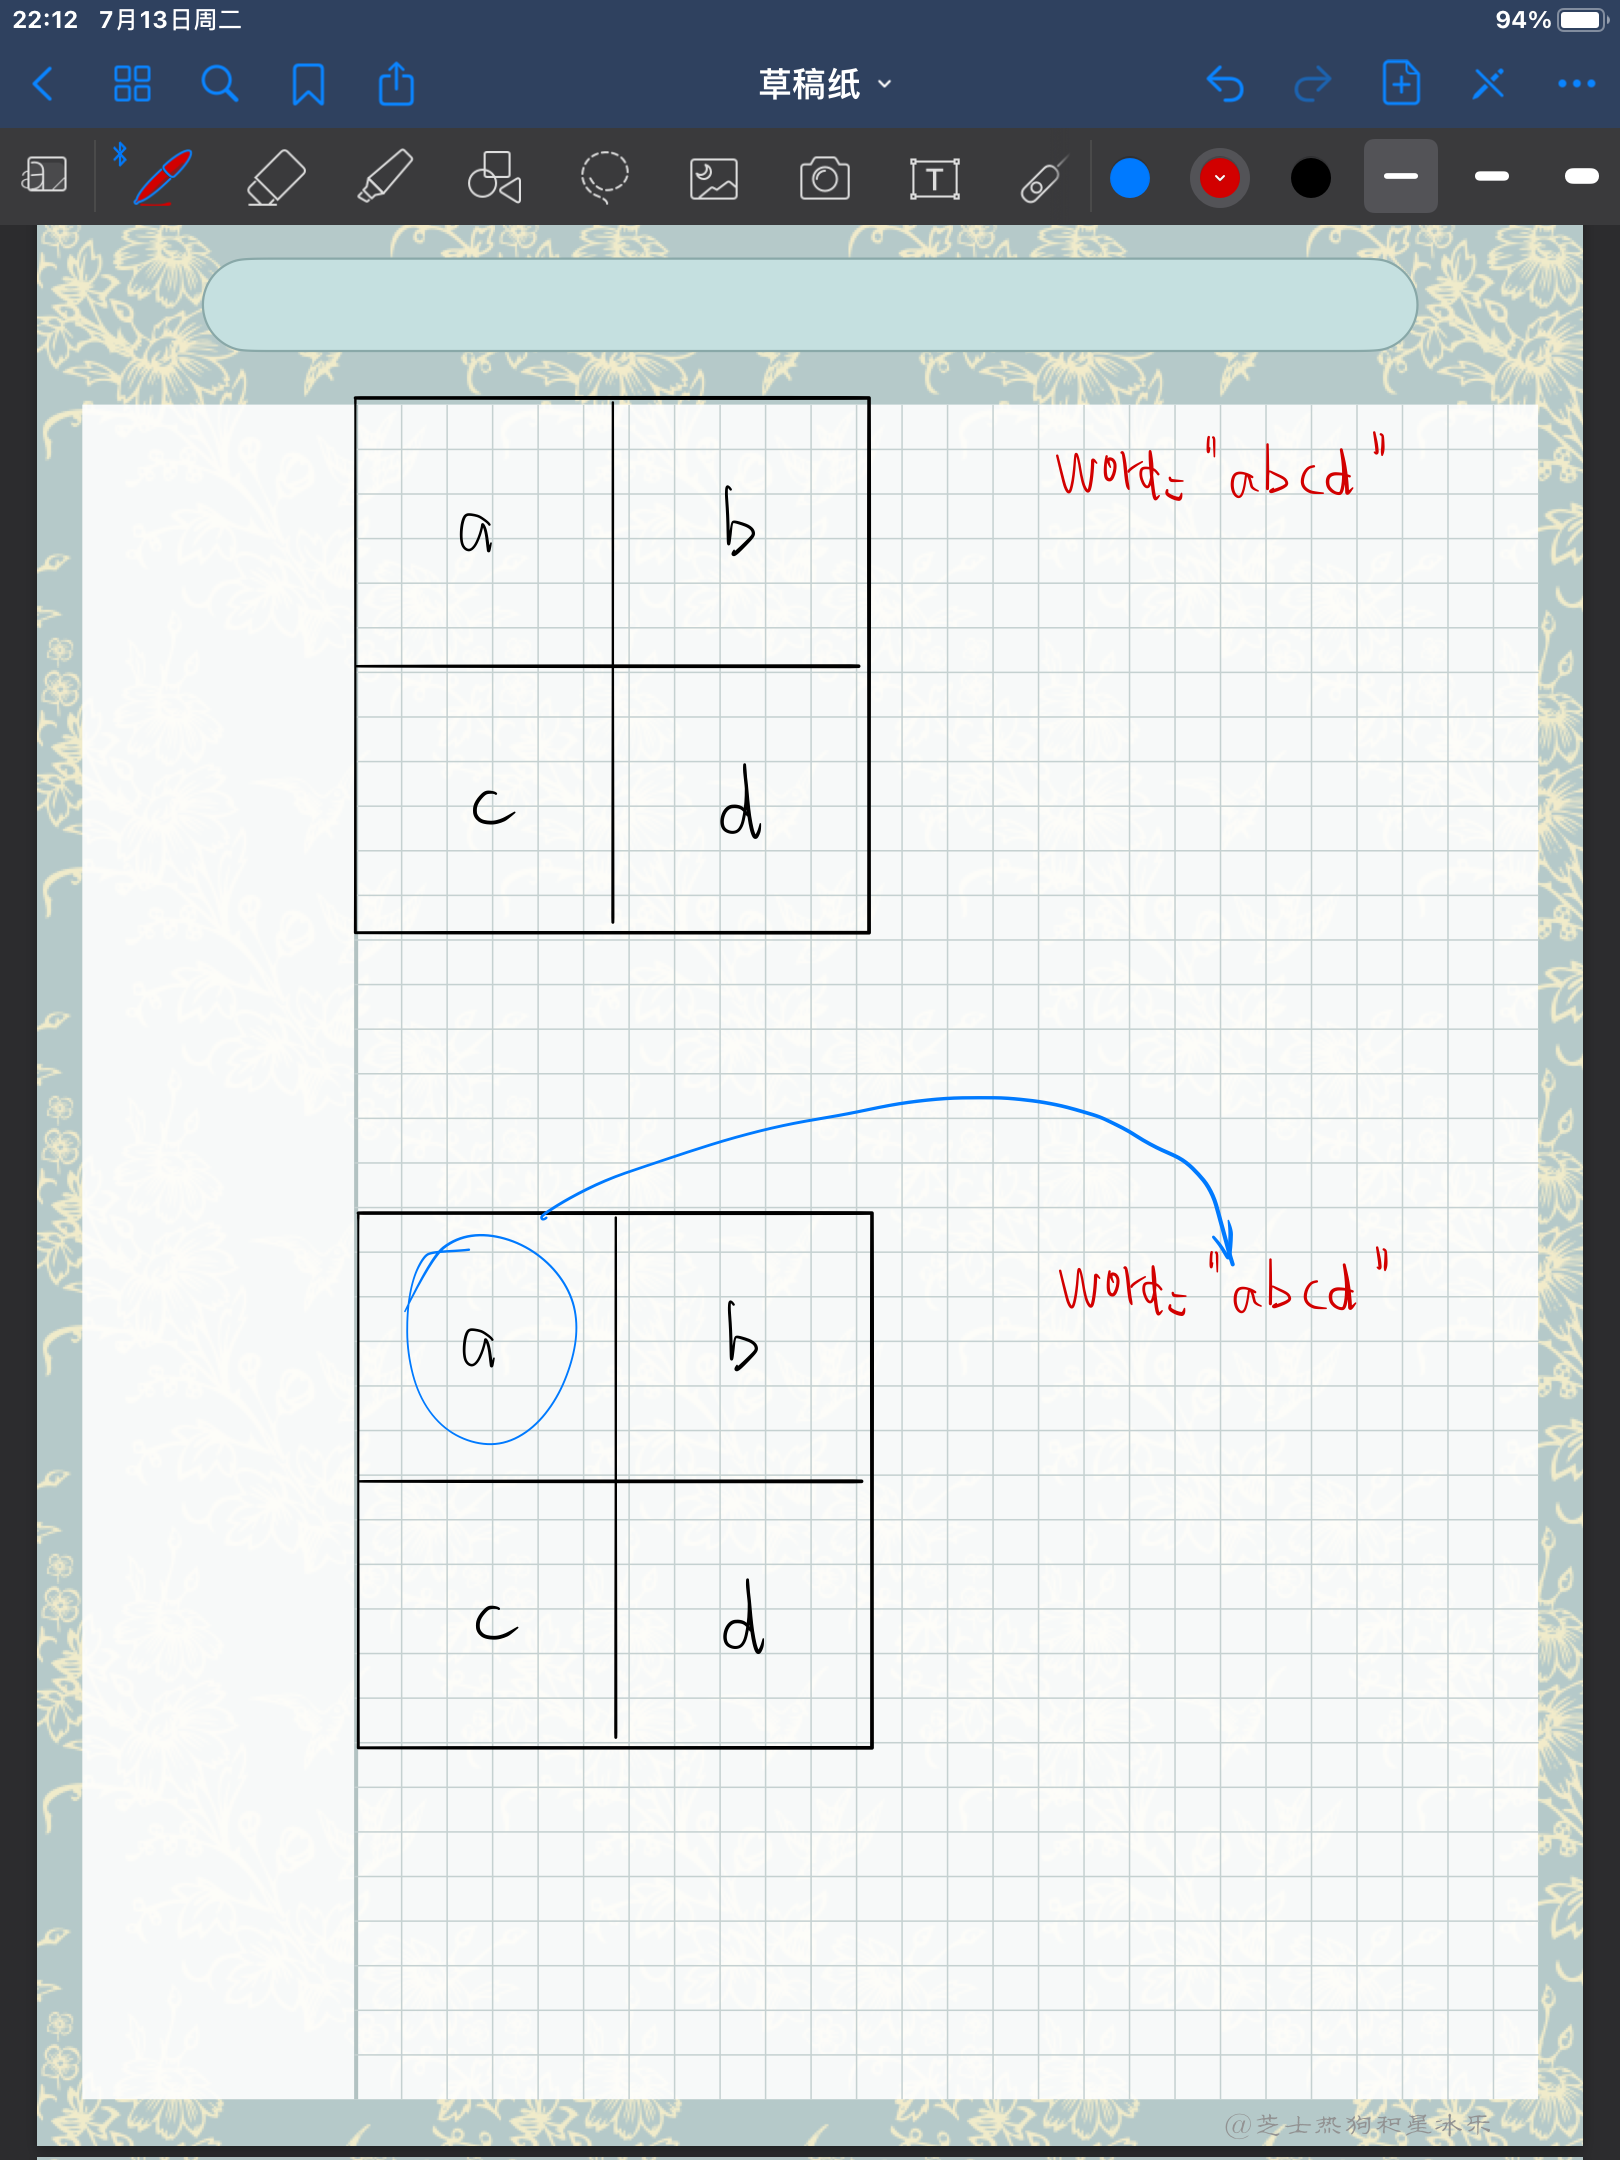 22:12 7月13日周二 94%
草稿纸
a b word="abcd"
c d
word="abcd"
a b
c d
@芝士热狗和星冰乐